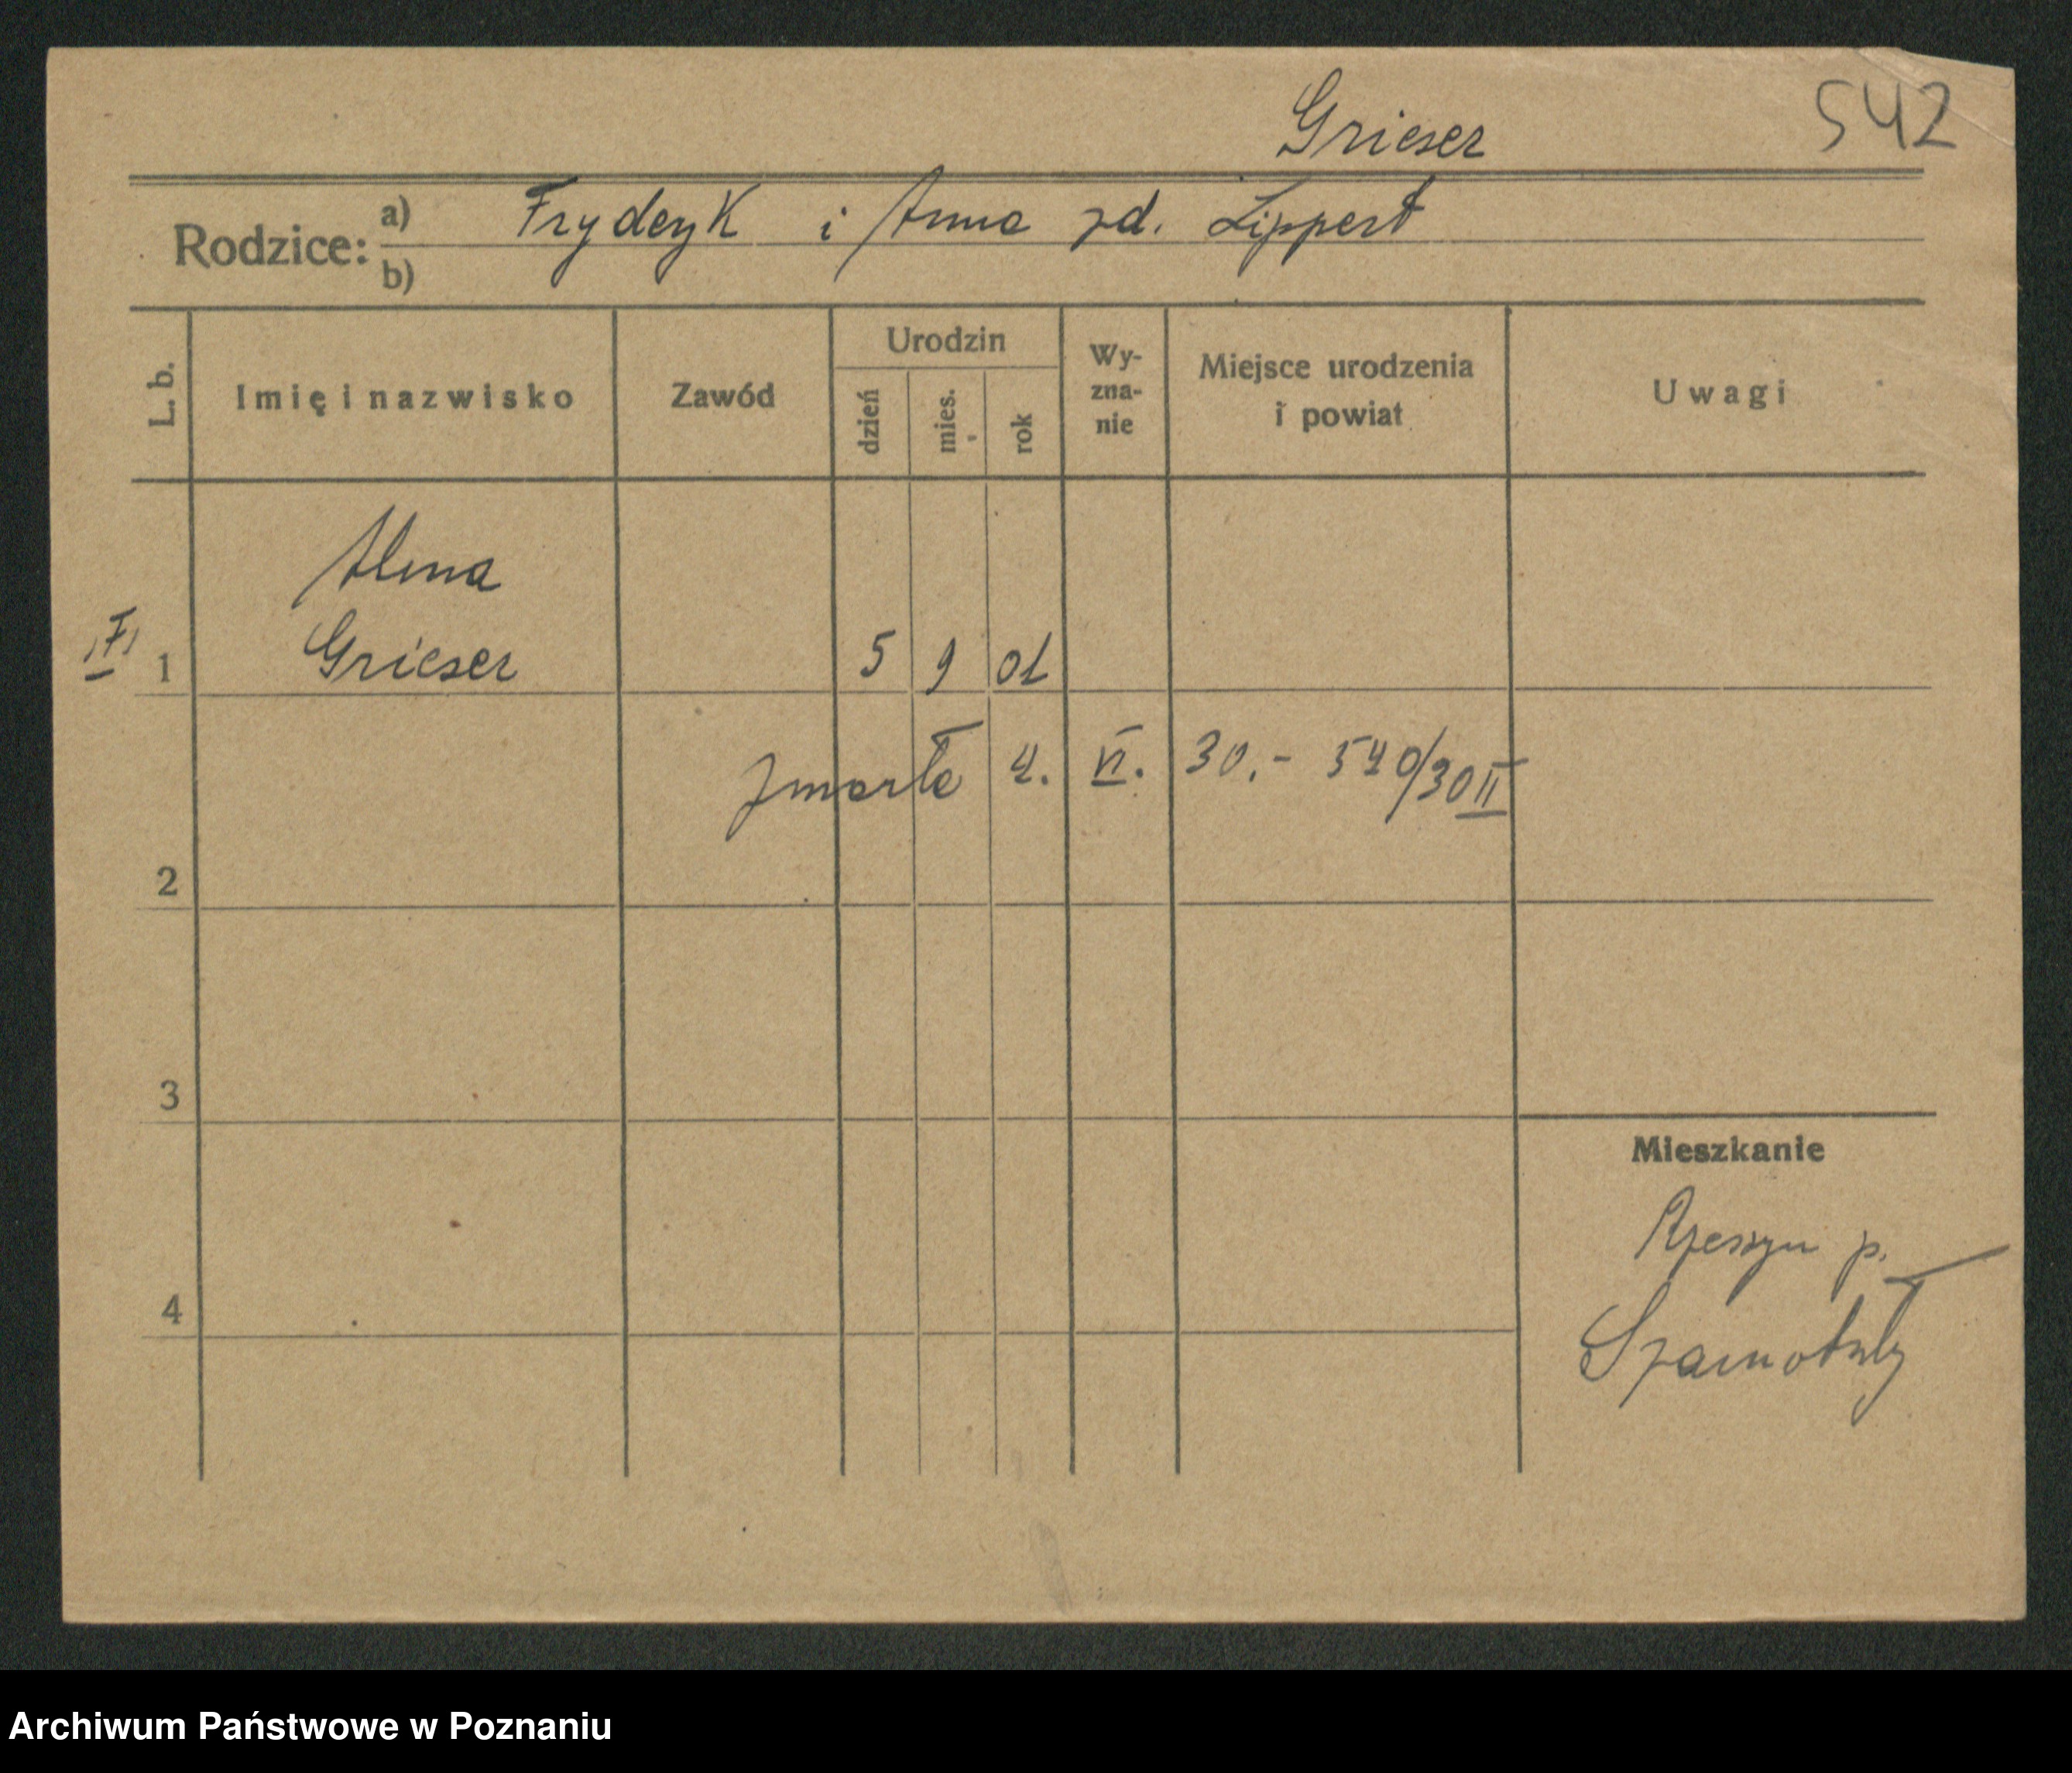 Grieser 542
Rodzice: a) Fryderyk i Anna zd. Lippert
b)
L. b. Imię i nazwisko Zawód Urodzin dzień mies. rok Wy-zna-nie Miejsce urodzenia i powiat Uwagi
Alma
1 Grieser 5 9 01
zmarła 4. VI. 30.- 540/30 II
2
3
Mieszkanie
p.
4
Szamotuły
Archiwum Państwowe w Poznaniu